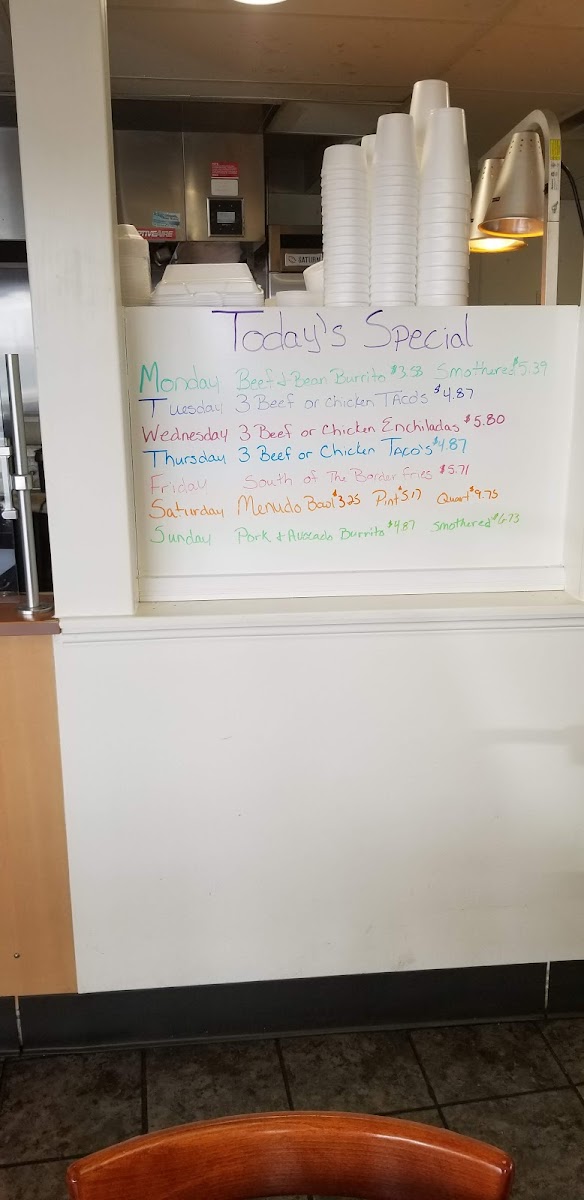 SATURN
Today's Special
Monday Beef & Bean Burrito $3.58 Smothered $5.39
Tuesday 3 Beef or Chicken TAco's $4.87
Wednesday 3 Beef or Chicken Enchiladas $5.80
Thursday 3 Beef or Chicken TAco's $4.87
Friday South of The Border fries $5.71
Saturday Menudo Bowl $3.25 Pint $5.17 Quart $9.75
Sunday Pork & Avocado Burrito $4.87 smothered $6.73